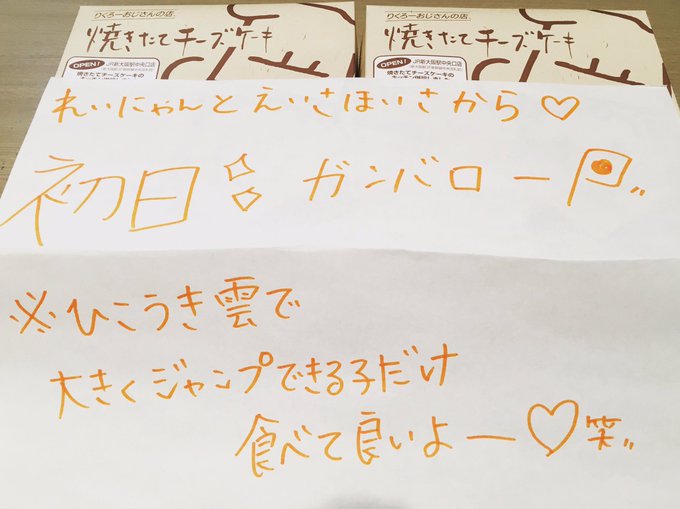 りくろーおじさんの店
焼きたてチーズケーキ
OPEN!
JR新大阪駅中央口店
焼きたてチーズケーキの
りくろーおじさんの店
焼きたてチーズケーキ
OPEN!
JR新大阪駅中央口店
焼きたてチーズケーキの
れいにゃんとえいさほいさから♡
初日 ガンバロー
※ひこうき雲で
大きくジャンプできる子だけ
食べて良いよー♡笑〃